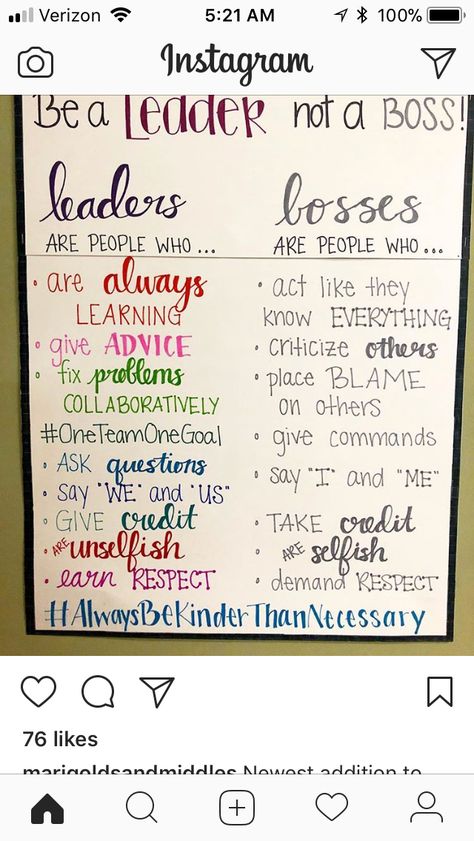 Verizon 5:21 AM 100%
Instagram
Be a LEADER not a BOSS!
leaders
ARE PEOPLE WHO ...
• are always
LEARNING
• give ADVICE
• fix problems
COLLABORATIVELY
#OneTeamOneGoal
• ASK questions
• say "WE" and "US"
• GIVE credit
• ARE unselfish
• earn RESPECT
bosses
ARE PEOPLE WHO ...
• act like they
know EVERYTHING
• criticize others
• place BLAME
on others
• give commands
• say "I" and "ME"
• TAKE credit
• ARE selfish
• demand RESPECT
#AlwaysBeKinderThanNecessary
76 likes
marigoldsandmiddles Newest addition to